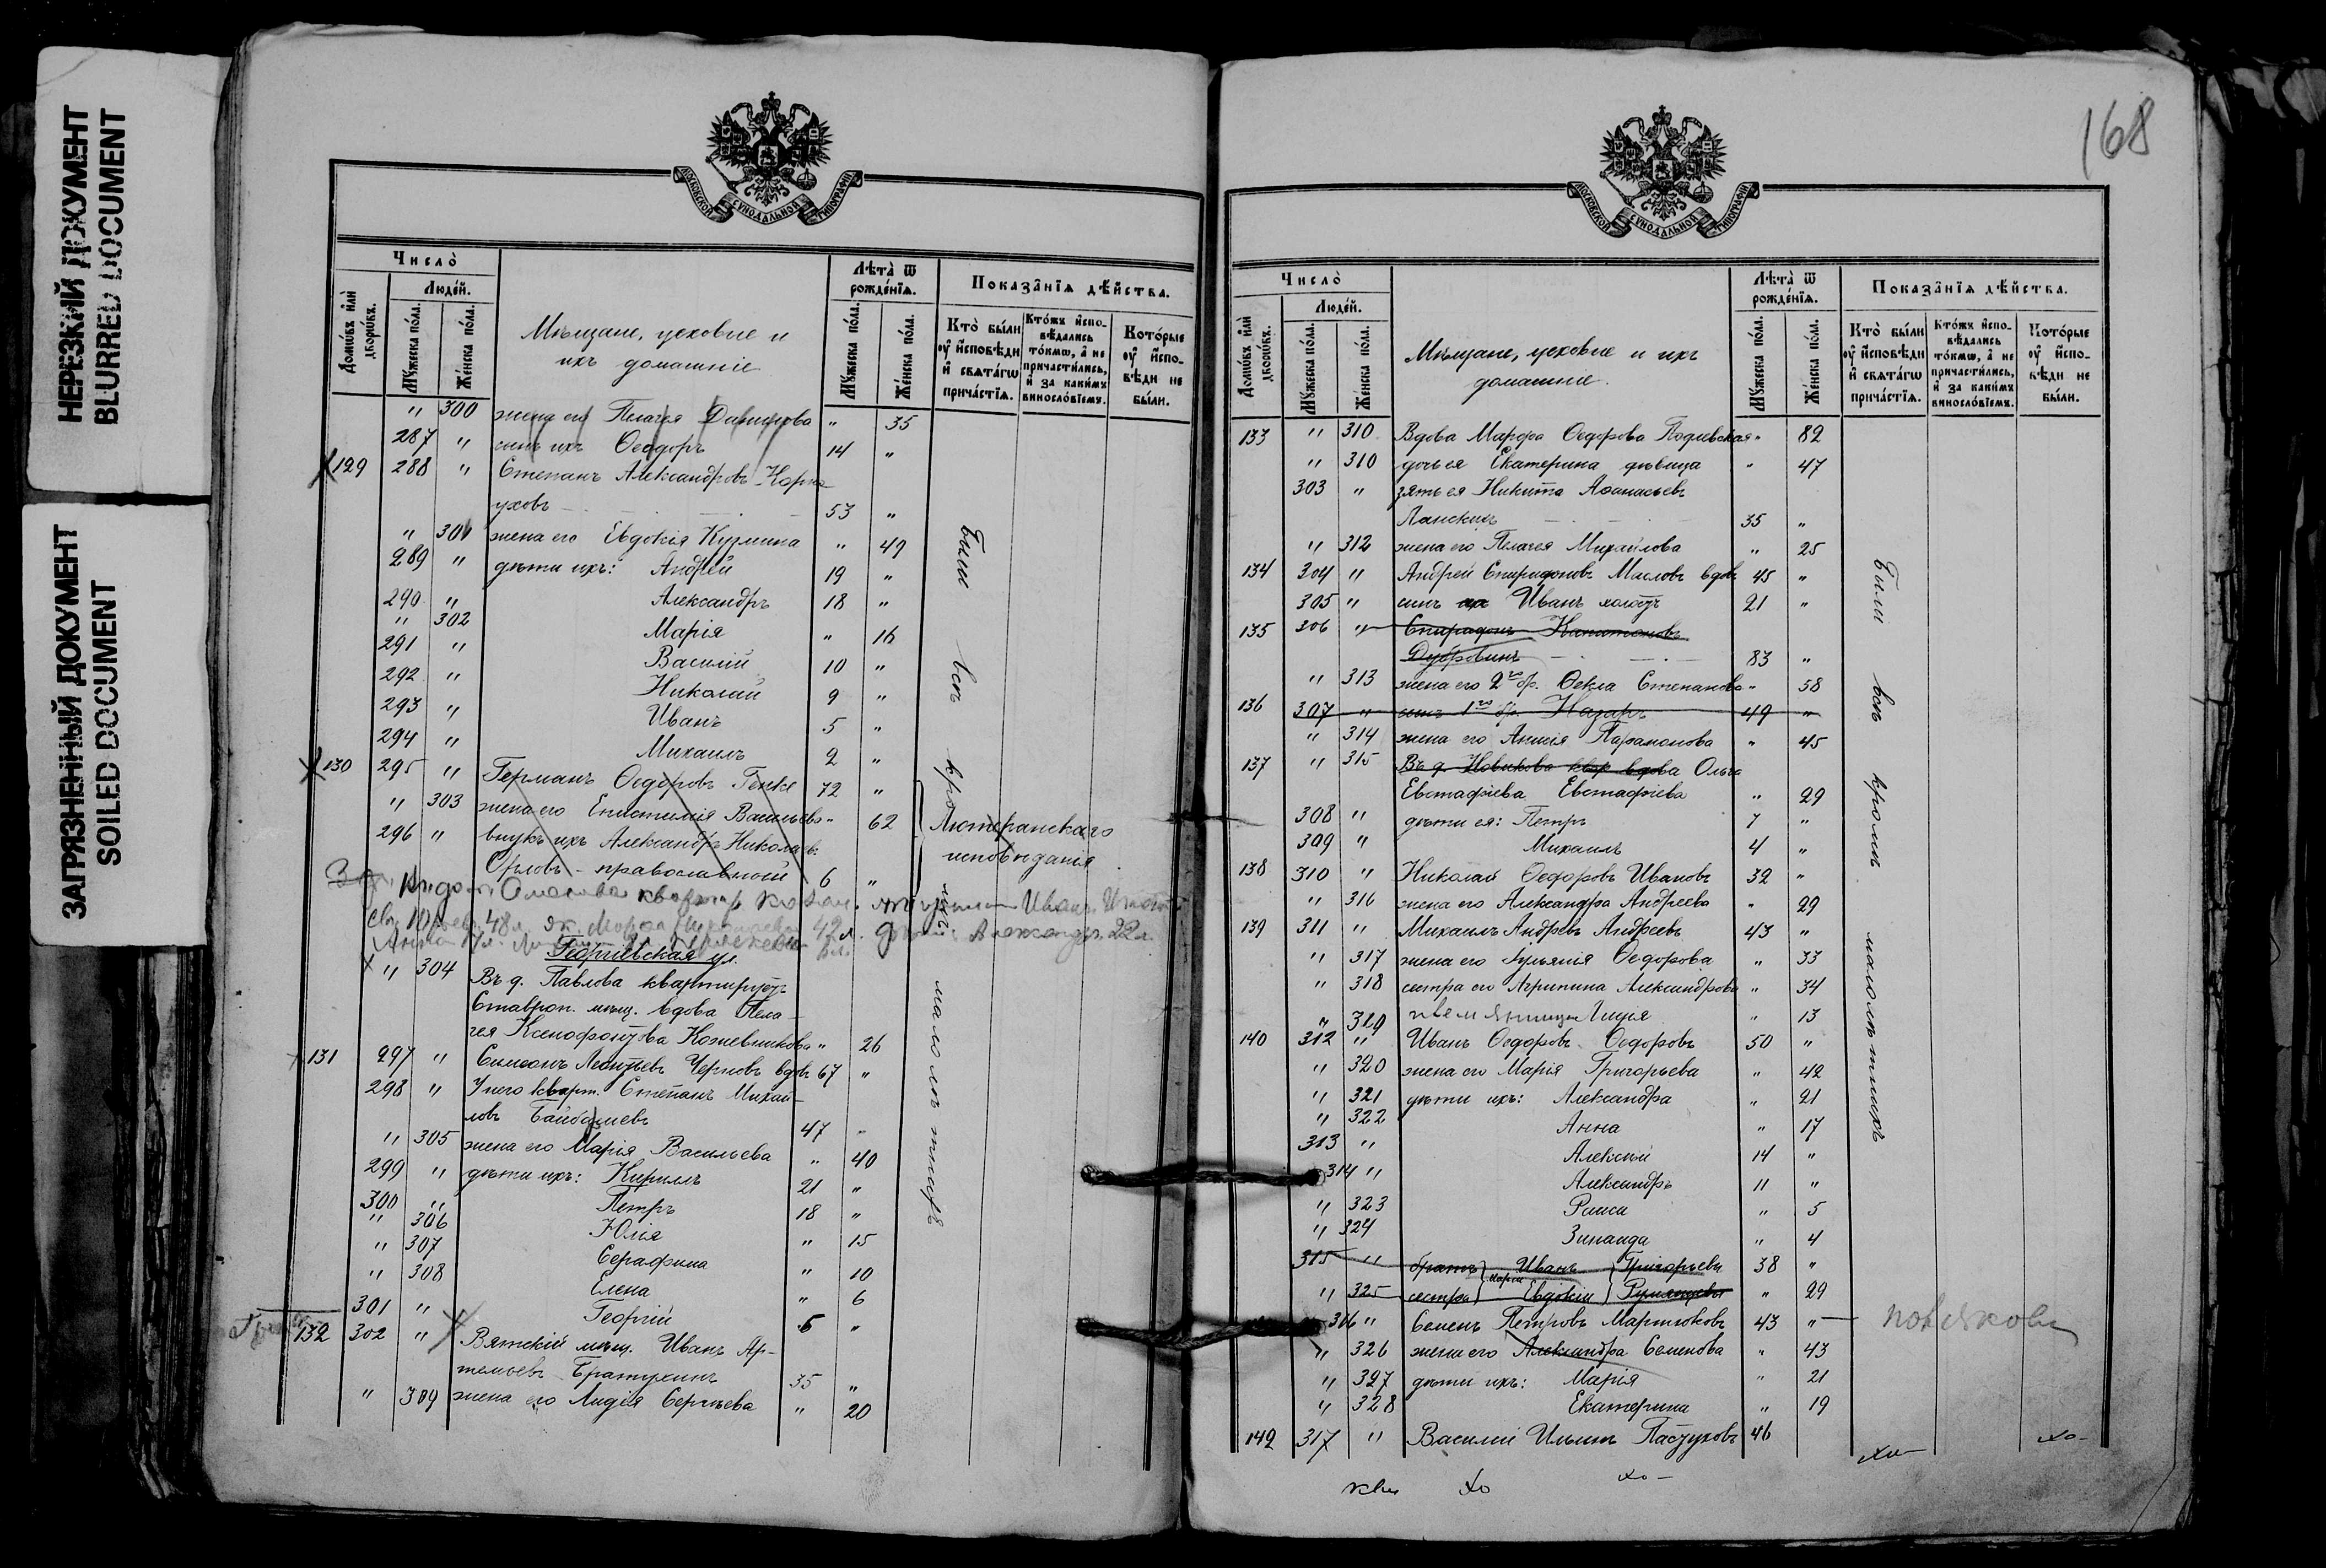 НЕРЕЗКИЙ ДОКУМЕНТ
BLURRED DOCUMENT
ЗАГРЯЗНЕННЫЙ ДОКУМЕНТ
SOILED DOCUMENT
МОСКОВСКОЙ СѴНОДАЛЬНОЙ ТИПОГРАФІИ
Число̀
Домѡ́въ и҆лѝ дворѡ́въ.
Люде́й.
Мꙋ́жеска по́ла.
Же́нска по́ла.
Мѣщане, цеховые и
ихъ домашніе
Лѣта̀ ѿ рожде́нїѧ.
Мꙋ́жеска по́ла.
Же́нска по́ла.
Показа̑нїѧ дѣ́йства.
Кто̀ бы́ли ᲂу҆ и҆спо́вѣди и҆ свѧта́гѡ прича́стїѧ.
Кто́жъ и҆сповѣ́дались то́кмѡ, а҆ не причасти́лись, и҆ за каки́мъ винносло́вїемъ.
Кото́рые ᲂу҆ и҆спо́вѣди не бы́ли.
" 300 жена его Пелагея Данилова " 35
287 " сынъ ихъ Ѳеодоръ 14 "
129 288 " Степанъ Александровъ Карна-
уховъ 53 "
" 301 жена его Евдокія Кузмина " 49
289 " дѣти ихъ: Андрей 19 "
290 " Александръ 18 "
" 302 Марія " 16
291 " Василій 10 "
292 " Николай 9 "
293 " Иванъ 5 "
294 " Михаилъ 2 "
130 295 " Германъ Ѳедоровъ Генке 72 "
" 303 жена его Епистимія Васильева " 62
296 " внукъ ихъ Александръ Николаев.
Орловъ - православный 6 "
Лютеранскаго
исповѣданія
Георгіевская ул.
" 304 Въ д. Павлова квартируетъ
Ставроп. мѣщ. вдова Пела-
гея Ксенофонтова Кожевникова " 26
131 297 " Симеонъ Леонтьевъ Черновъ вдов. 67 "
298 " У него кварт. Степанъ Михай-
ловъ 47 "
" 305 жена его Марія Васильева " 40
299 " дѣти ихъ: Кириллъ 21 "
300 " Петръ 18 "
" 306 Юлія " 15
" 307 Серафима " 10
" 308 Елена " 6
301 " Георгій 5 "
132 302 " Вятскій мѣщ. Иванъ Ар-
темьевъ Братухинъ 35 "
" 309 жена его Лидія Сергѣева " 20
Были всѣ кромѣ малолѣтнихъ
168
МОСКОВСКОЙ СѴНОДАЛЬНОЙ ТИПОГРАФІИ
Число̀
Домѡ́въ и҆лѝ дворѡ́въ.
Люде́й.
Мꙋ́жеска по́ла.
Же́нска по́ла.
Мѣщане, цеховые и ихъ
домашніе.
Лѣта̀ ѿ рожде́нїѧ.
Мꙋ́жеска по́ла.
Же́нска по́ла.
Показа̑нїѧ дѣ́йства.
Кто̀ бы́ли ᲂу҆ и҆спо́вѣди и҆ свѧта́гѡ прича́стїѧ.
Кто́жъ и҆сповѣ́дались то́кмѡ, а҆ не причасти́лись, и҆ за каки́мъ винносло́вїемъ.
Кото́рые ᲂу҆ и҆спо́вѣди не бы́ли.
133 " 310 Вдова Марѳа Ѳедорова " 82
" 310 дочь ея Екатерина дѣвица " 47
303 " зять ея Никита Аѳанасьевъ
Ланскихъ 35 "
" 312 жена его Пелагея Михайлова " 25
134 304 " Андрей Спиридоновъ Масловъ вдов. 45 "
305 " сынъ Иванъ холостъ 21 "
135 306 " Спиридонъ Капитоновъ
Дубровинъ 83 "
" 313 жена его 2го бр. Ѳекла Степанова " 58
136 307 " сынъ 1го бр. Назаръ 49 "
" 314 жена его Анисія Парамонова " 45
137 " 315 Въ д. Новикова квар. вдова Ольга
Евстафіева Евстафіева " 29
308 " дѣти ея: Петръ 7 "
309 " Михаилъ 4 "
138 310 " Николай Ѳедоровъ Ивановъ 32 "
" 316 жена его Александра Андреева " 29
139 311 " Михаилъ Андреевъ Андреевъ 43 "
" 317 жена его Іульянія Ѳедорова " 33
" 318 сестра его Агрипина Александрова " 34
" 319 племянница Лидія " 13
140 312 " Иванъ Ѳедоровъ Ѳедоровъ 50 "
" 320 жена его Марія Григорьева " 42
" 321 дѣти ихъ: Александра " 21
" 322 Анна " 17
313 " Алексѣй 14 "
314 " Александръ 11 "
" 323 Раиса " 5
" 324 Зинаида " 4
315 " братъ Иванъ Григорьевы 38 "
" 325 сестра Марія Евдокія Румянцевы " 29
316 " Семенъ Петровъ Мартюковъ 43 "
" 326 жена его Александра Семенова " 43
" 327 дѣти ихъ: Марія " 21
" 328 Екатерина " 19
142 317 " Василій Ильинъ Пастуховъ 46
Были всѣ кромѣ малолѣтнихъ